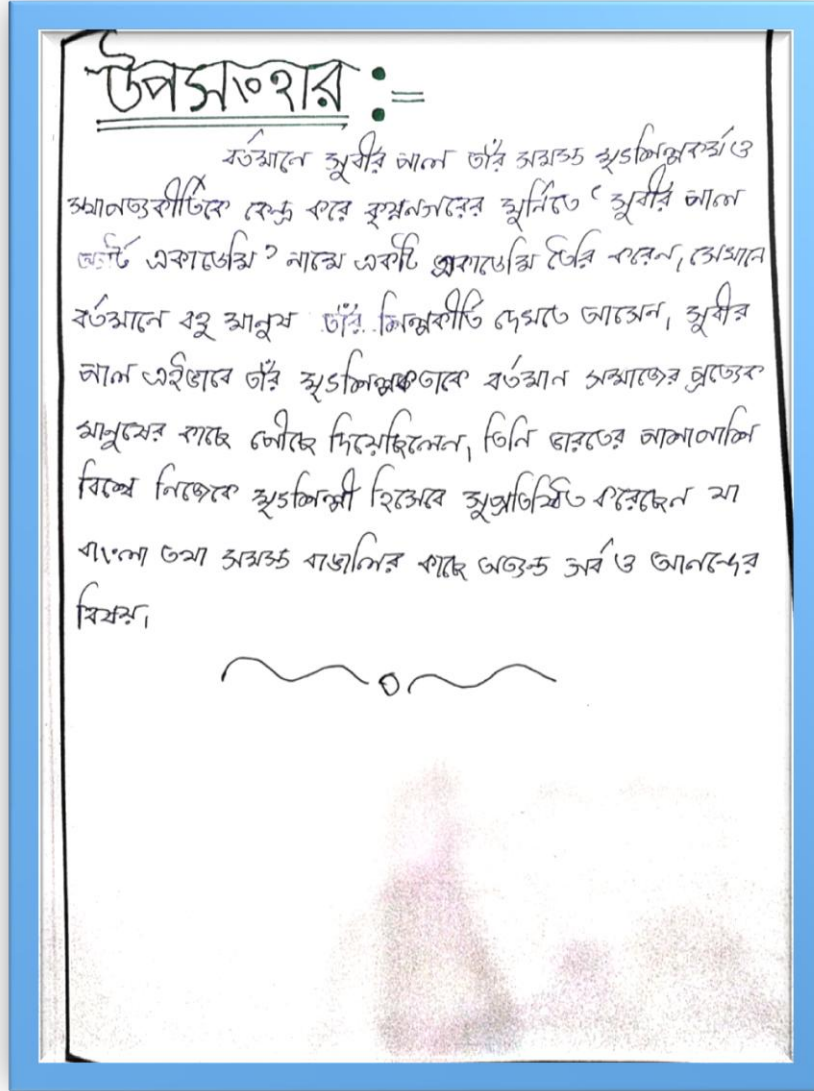 উপসংহার :=
বর্তমানে সুবীর পাল তাঁর সমস্ত মৃৎশিল্পকর্ম ও
স্থাপত্যকীর্তিকে কেন্দ্র করে কৃষ্ণনগরের ঘুর্নিতে ‘সুবীর পাল
আর্ট একাডেমি’ নামে একটি একাডেমি তৈরি করেন, সেখানে
বর্তমানে বহু মানুষ তাঁর শিল্পকীর্তি দেখতে আসেন, সুবীর
পাল এইভাবে তাঁর মৃৎশিল্পকে বর্তমান সমাজের প্রত্যেক
মানুষের কাছে পৌঁছে দিয়েছিলেন, তিনি ভারতের পাশাপাশি
বিশ্বে নিজেকে মৃৎশিল্পী হিসেবে সুপ্রতিষ্ঠিত করেছেন যা
বাংলা তথা সমস্ত বাঙালির কাছে অত্যন্ত গর্ব ও আনন্দের
বিষয়,